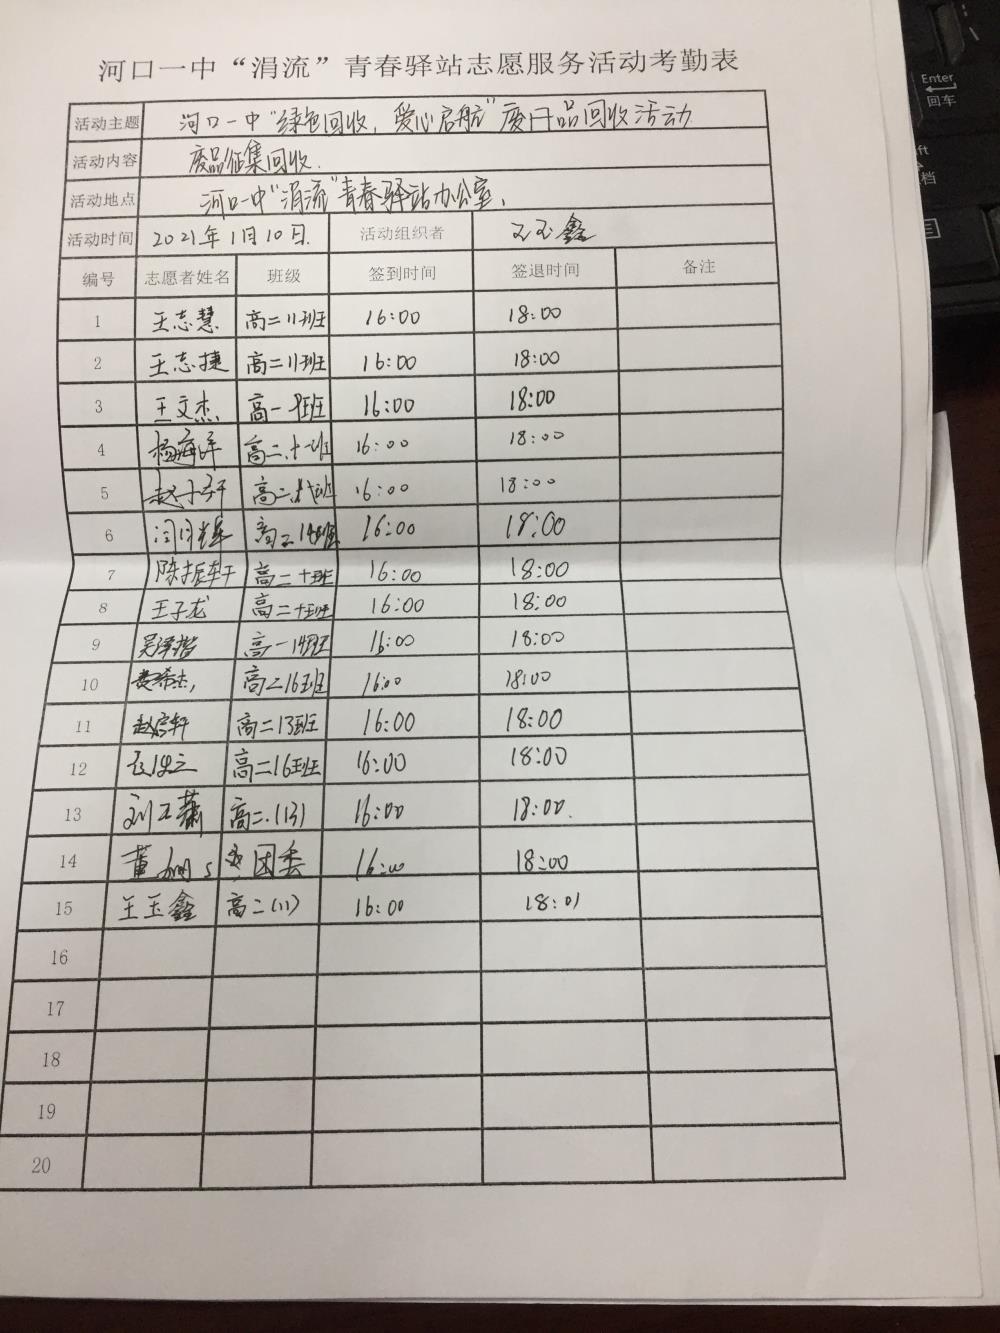 河口一中“涓流”青春驿站志愿服务活动考勤表
活动主题 河口一中“绿色回收，爱心启航”废旧品回收活动
活动内容 废品征集回收.
活动地点 河口一中“涓流”青春驿站办公室.
活动时间 2021年1月10日. 活动组织者 王玉鑫
编号 志愿者姓名 班级 签到时间 签退时间 备注
1 王志慧 高二11班 16:00 18:00
2 王志捷 高二11班 16:00 18:00
3 王文杰 高一 班 16:00 18:00
4 杨海洋 高二.十一班 16:00 18:00
5 赵子轩 高二 班 16:00 18:00
6 高二14班 16:00 18:00
7 陈振轩 高二十班 16:00 18:00
8 王子龙 高二十班 16:00 18:00
9 吴泽楷 高一14班 16:00 18:00
10 高二16班 16:00 18:00
11 赵启轩 高二13班 16:00 18:00
12 高二16班 16:00 18:00
13 刘 高二.(13) 16:00 18:00.
14 董 团委 16:00 18:00
15 王玉鑫 高二(11) 16:00 18:01
16
17
18
19
20
Enter
回车
档